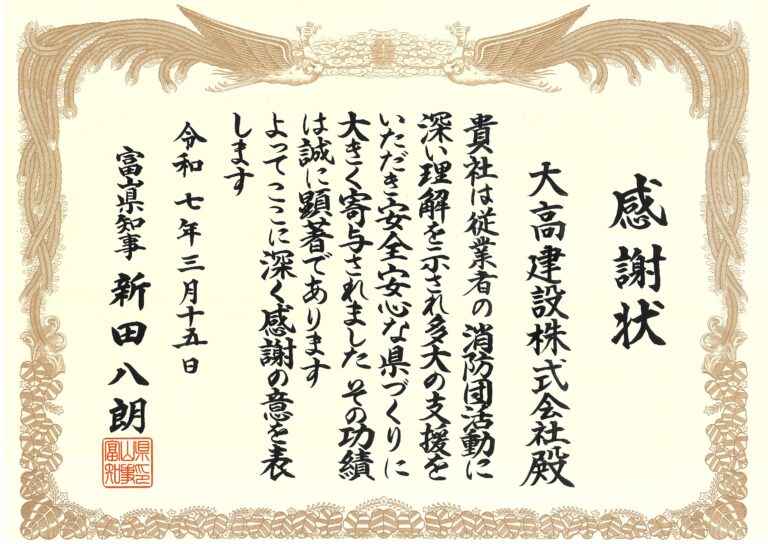 感謝状
大高建設株式会社殿
貴社は従業者の消防団活動に
深い理解を示され多大の支援を
いただき安全安心な県づくりに
大きく寄与されました その功績
は誠に顕著であります
よってここに深く感謝の意を表
します
令和七年三月十五日
富山県知事 新田八朗
富山県知事印